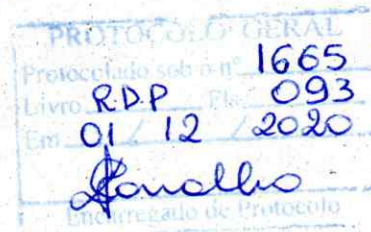 PROTOCOLO GERAL
Protocolado sob o nº 1665
Livro RDP Fls. 093
Em 01 / 12 / 2020
Encarregado de Protocolo